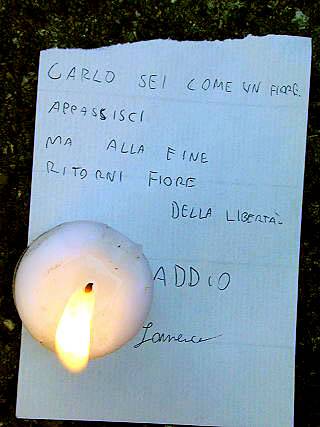 CARLO SEI COME UN FIORE
APPASSISCI
MA ALLA FINE
RITORNI FIORE
DELLA LIBERTÀ
ADDIO